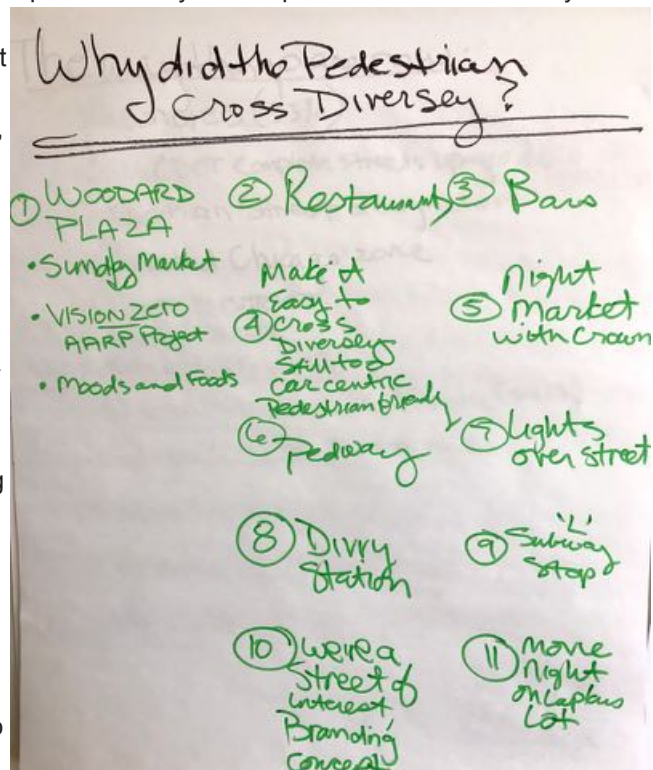 Why did the Pedestrian
Cross Diversey?
① WOODARD
PLAZA
• Sunday Market
• VISION ZERO
AARP Project
• Moods and Foods
② Restaurants
③ Bars
④ Make it
Easy to
cross
Diversey
Still too
car centric
Pedestrian friendly
⑤ Night
Market
with Crown
⑥ Pedway
lights
over street
⑧ Divvy
Station
⑨ 'L'
Subway
Stop
⑩ We're a
Street of
interest
Branding
Concept
⑪ Movie
night
on
Lot